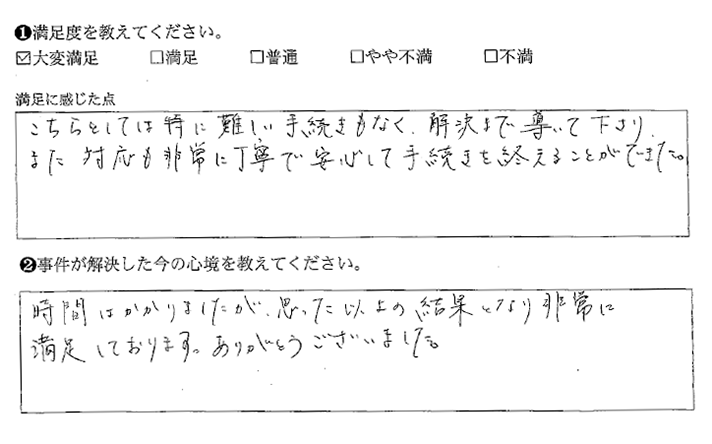 ❶満足度を教えてください。
☑大変満足 □満足 □普通 □やや不満 □不満
満足に感じた点
こちらとしては特に難しい手続きもなく、解決まで導いて下さり、
また対応も非常に丁寧で安心して手続きを終えることができました。
❷事件が解決した今の心境を教えてください。
時間はかかりましたが、思った以上の結果となり非常に
満足しております。ありがとうございました。